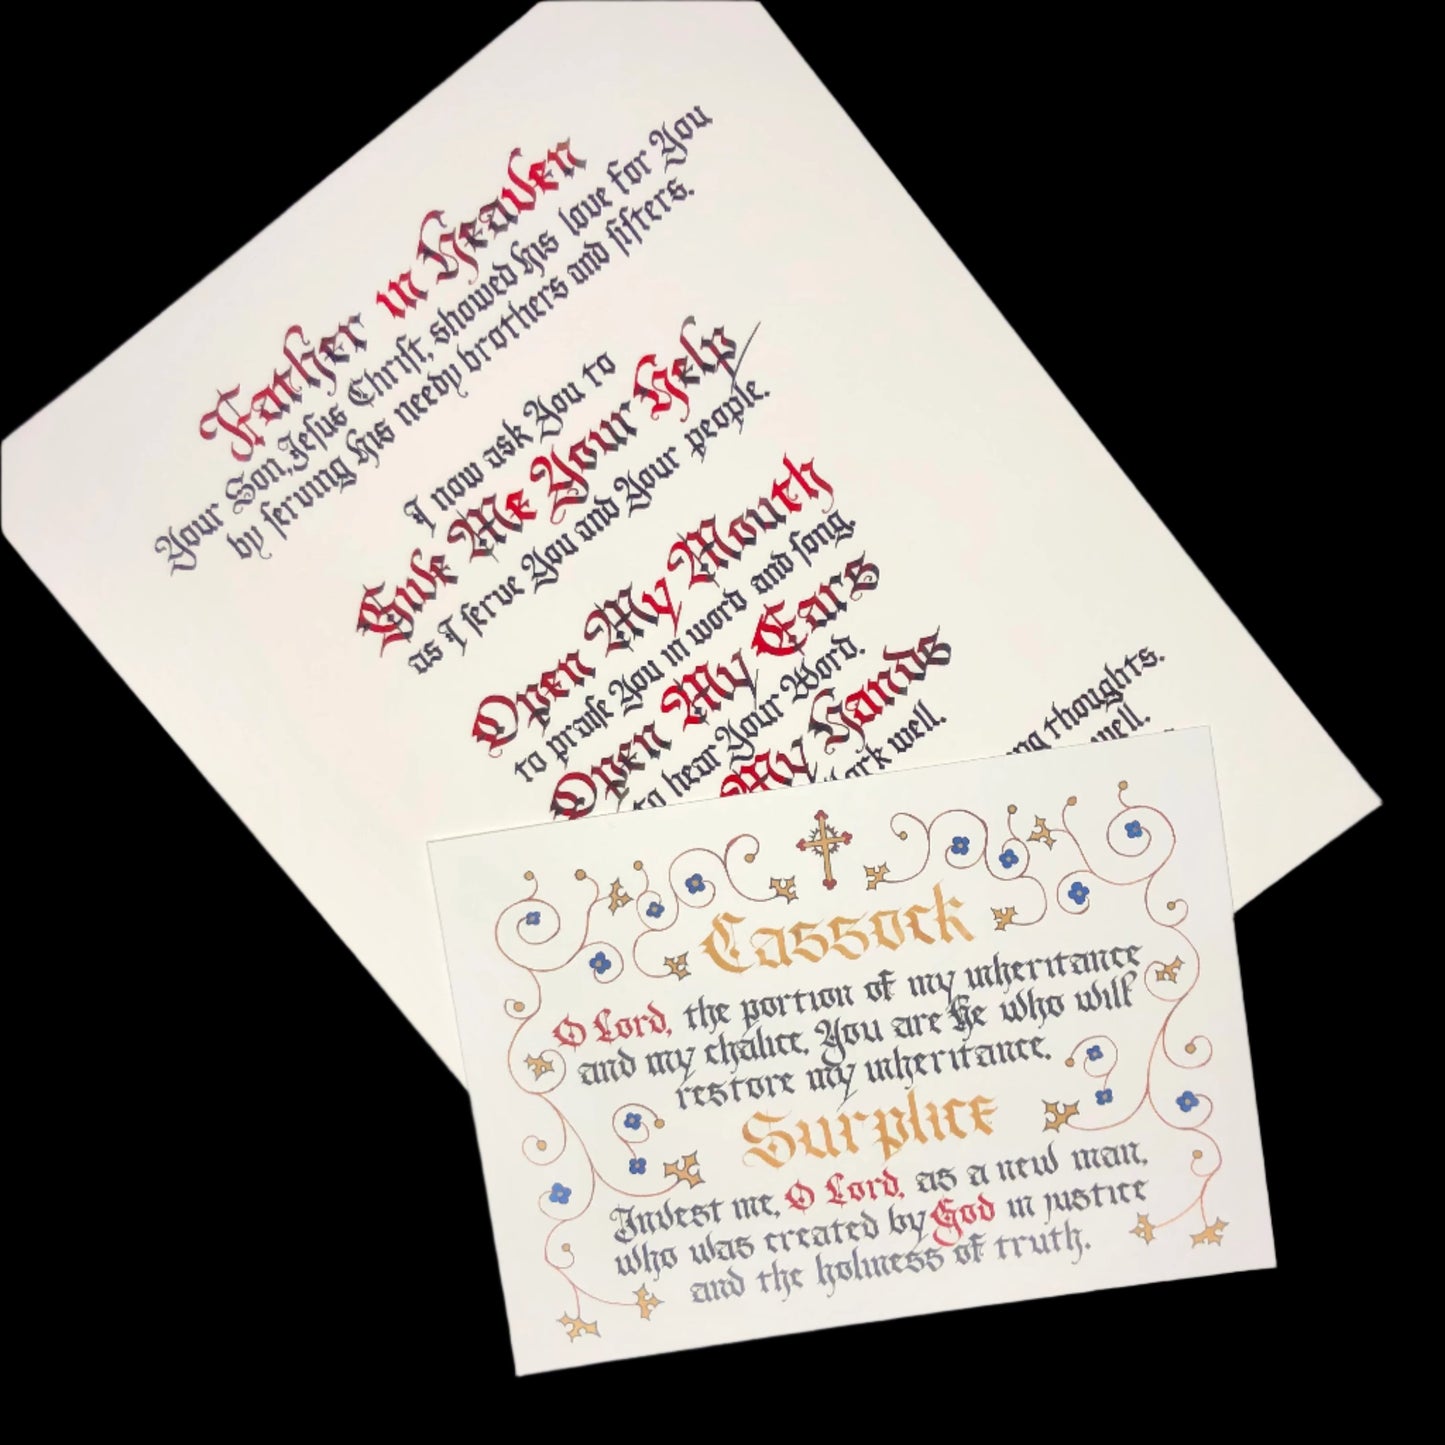 Father in Heaven
Your Son, Jeſus Chriſt, showed his love for You
by ſerving his needy brothers and ſiſters.
I now ask You to
Give Me Your Help
as I ſerve You and Your people.
Open My Mouth
to praiſe You in word and ſong.
Open My Ears
to hear Your Word.
My Hands
well.
thoughts.
well.
Cassock
O Lord, the portion of my inheritance
and my chalice, You are He who will
restore my inheritance.
Surplice
Invest me, O Lord, as a new man,
who was created by God in justice
and the holiness of truth.